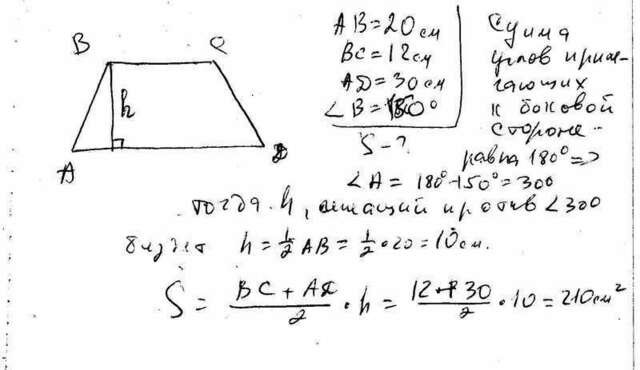 B C
h
A D
AB = 20 см
BC = 12 см
AD = 30 см
∠B = 150°
S - ?
Сумма
углов прилегающих
к боковой
стороне
равна 180° =>
∠A = 180° - 150° = 300
тогда h, лежащий против ∠300
будет h = 1/2 AB = 1/2 • 20 = 10 см.
S = (BC + AD)/2 • h = (12 + 30)/2 • 10 = 210 см²